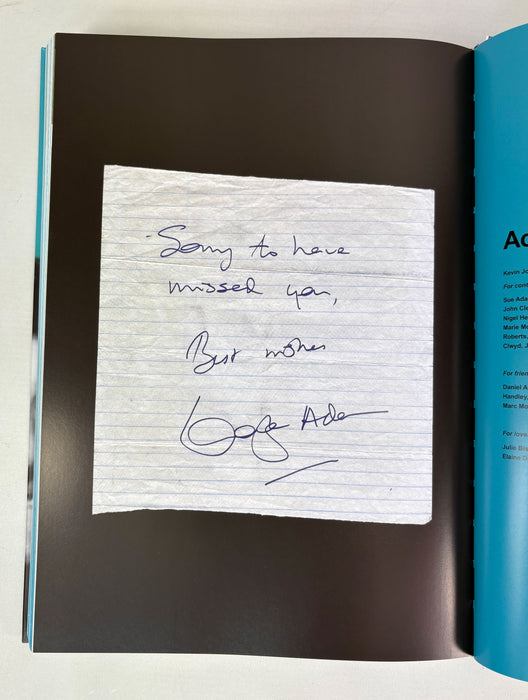 Sorry to have
missed you,
Best wishes
Douglas Adams
Ac
Kevin Jo
For cont
Sue Ada
John Cle
Nigel He
Marie Mc
Roberts,
Clwyd, J
For frien
Daniel A
Handley,
Marc Mo
For love
Julie
Elaine D